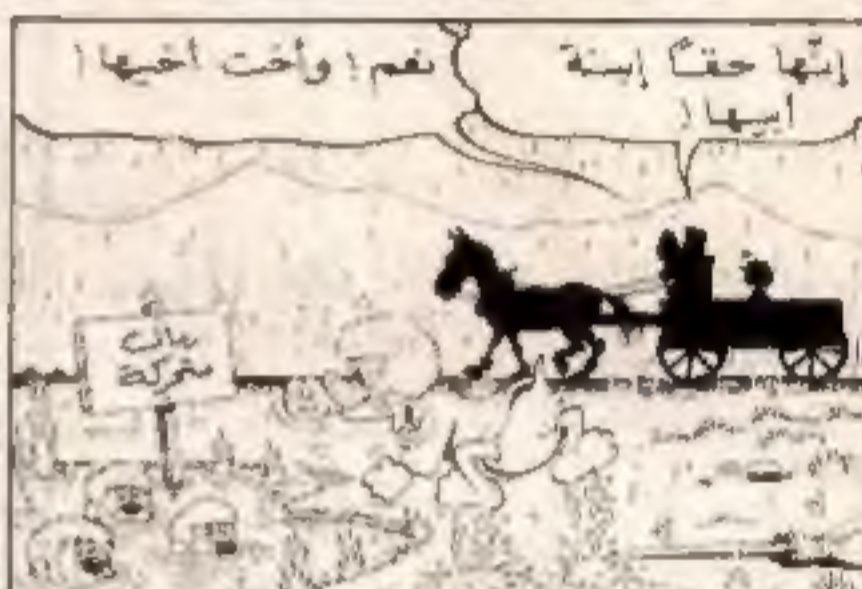 إنّها حقاً إبنة
أبيها !
نعم ! وأخت أخيها !
نبات
متحركة